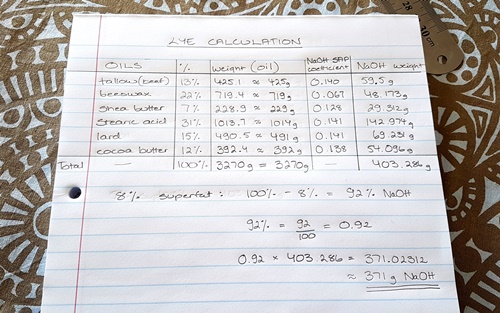 LYE CALCULATION
OILS % weight (oil) NaOH SAP coefficient NaOH weight
tallow (beef) 13% 425.1 ≈ 425g 0.140 59.5g
beeswax 22% 719.4 ≈ 719g 0.067 48.173g
shea butter 7% 228.9 ≈ 229g 0.128 29.312g
stearic acid 31% 1013.7 ≈ 1014g 0.141 142.974g
lard 15% 490.5 ≈ 491g 0.141 69.231g
cocoa butter 12% 392.4 ≈ 392g 0.138 54.096g
Total — 100% 3270g = 3270g — 403.286g
8% superfat: 100% - 8% = 92% NaOH
92% = 92/100 = 0.92
0.92 × 403.286 = 371.02312
≈ 371g NaOH